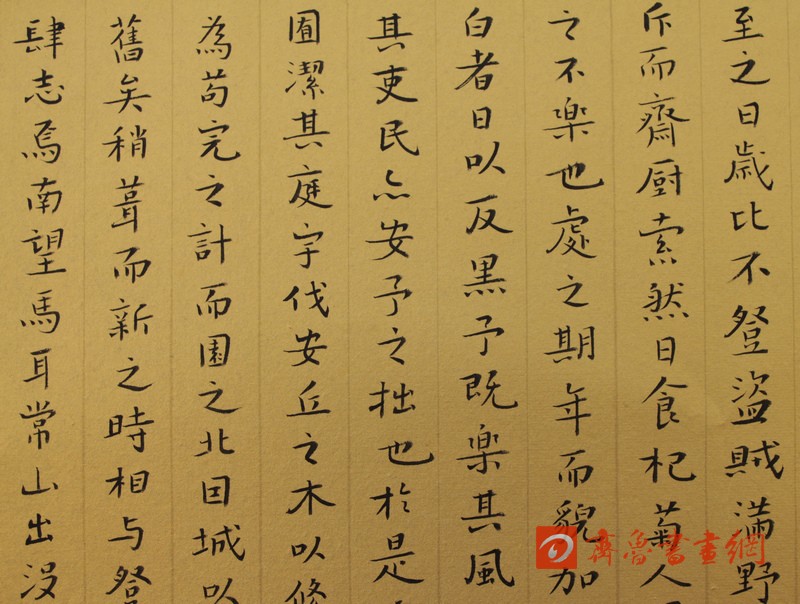 至之日歲比不登盜賊滿野
斥而齋厨索然日食杞菊人
之不楽也處之期年而貌加
白者日以反黑予既楽其風
其吏民亦安予之拙也於是
囿潔其庭宇伐安丘之木以修
為苟完之計而園之北因城以
舊矣稍葺而新之時相与登
肆志焉南望馬耳常山出没
齊魯書畫網